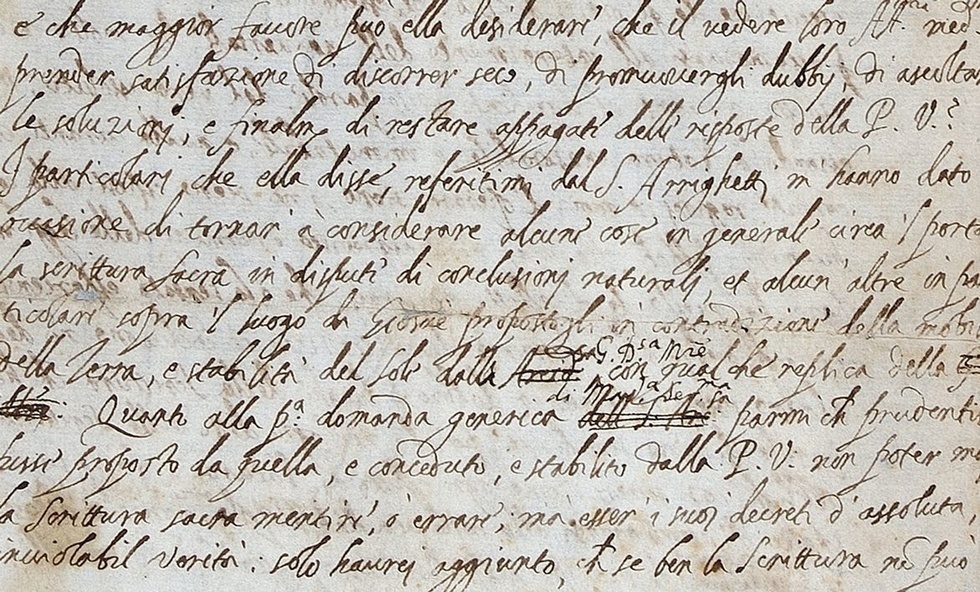 e che maggior favore può ella desiderare, che il vedere loro AA.
prender satisfazione di discorrer seco, di promuovergli dubbij, di ascolta
le soluzioni, e finalm.e di restare appagate delle risposte della P. V.?
I particolari che ella disse, referitimi dal S. Arrighetti m'hanno dato
occasione di tornar à considerare alcune cose in generale circa 'l porta
la scrittura sacra in dispute di conclusioni naturali, et alcun' altre in pa
ticolare sopra 'l luogo di Giosuè propostogli in contradizione della mobi
G. D.sa M.re
della Terra, e stabilità del Sole dalla con qualche replica della
di Ma ser.ma
Quanto alla p.a domanda generica parmi ch prudenti
fusse proposto da quella, e conceduto, e stabilito dalla P. V. non poter ma
la Scrittura sacra mentire, ò errare, mà esser i suoi decreti d'assoluta,
inviolabil verità: solo haurei aggiunto, ch se ben la Scrittura nõ può